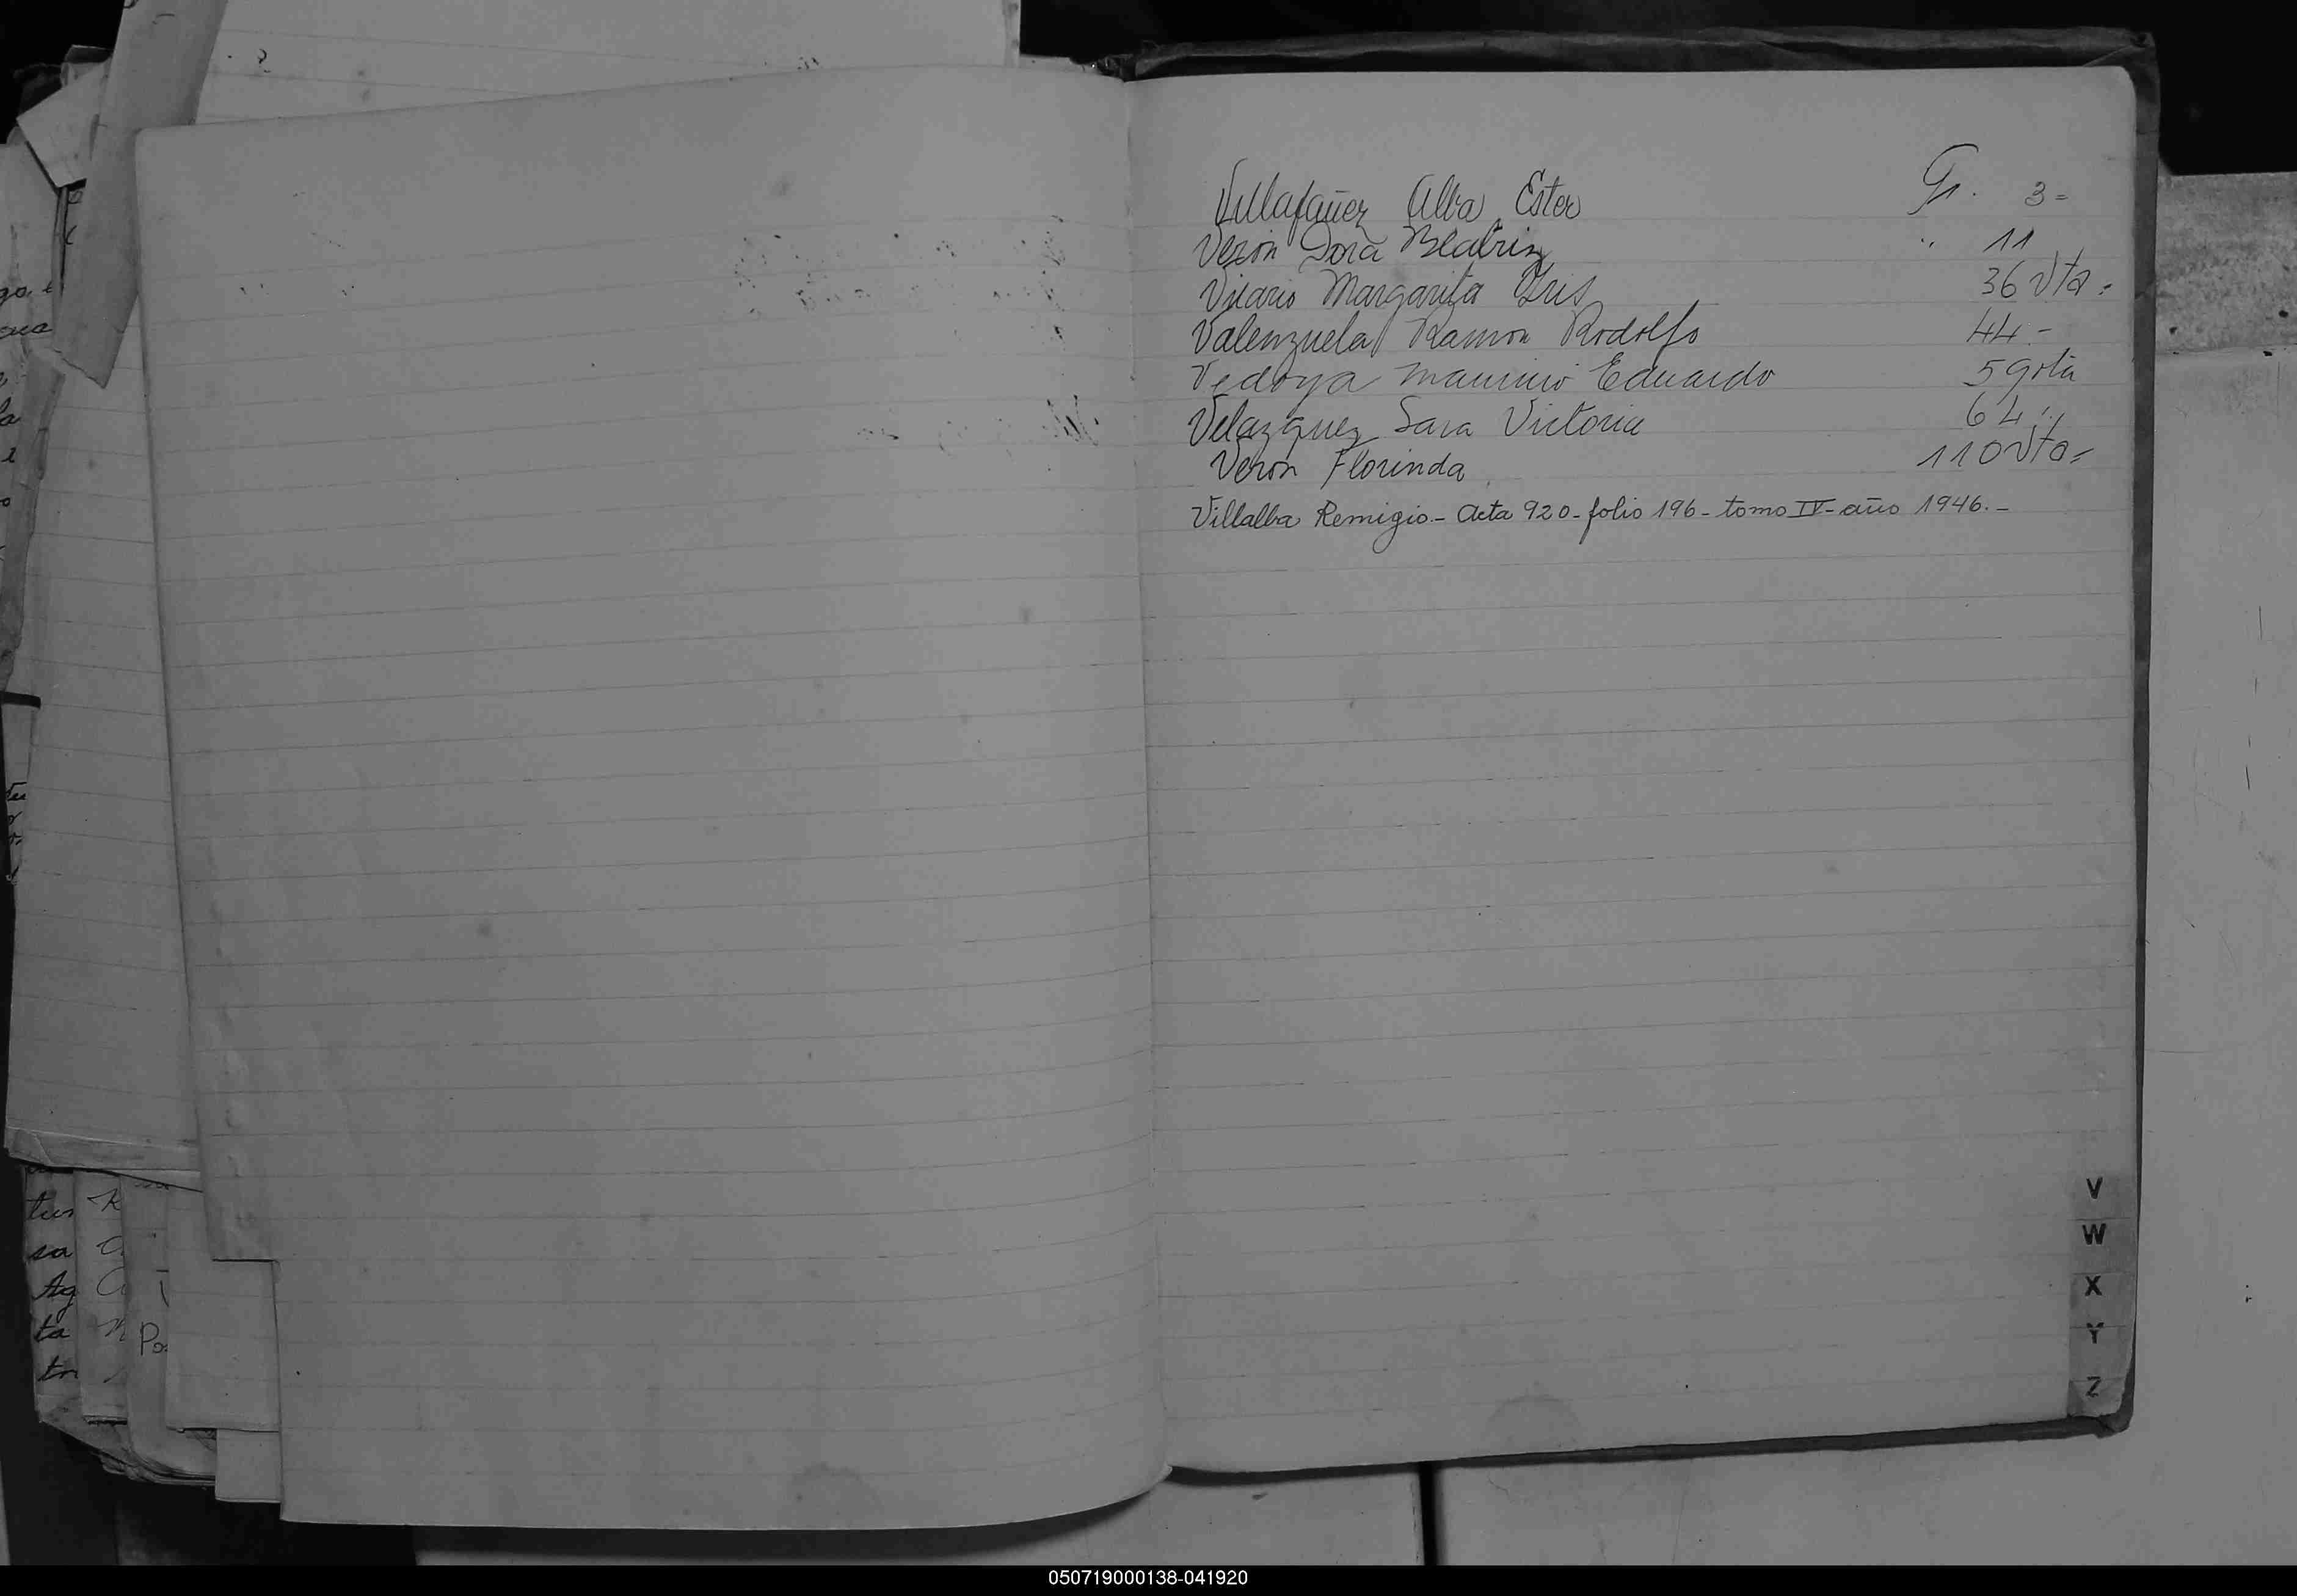 Villafañez Alba Ester Fo. 3=
Verón Dora Beatriz " 11
Vicario Margarita Iris 36 Vta=
Valenzuela Ramon Rodolfo 44.-
Vedoya Mauricio Eduardo 59 vta
Velazquez Sara Victoria 64
Veron Florinda 110 Vta=
Villalba Remigio.- Acta 920-folio 196-tomo IV-año 1946.-
V
W
X
Y
Z
050719000138-041920